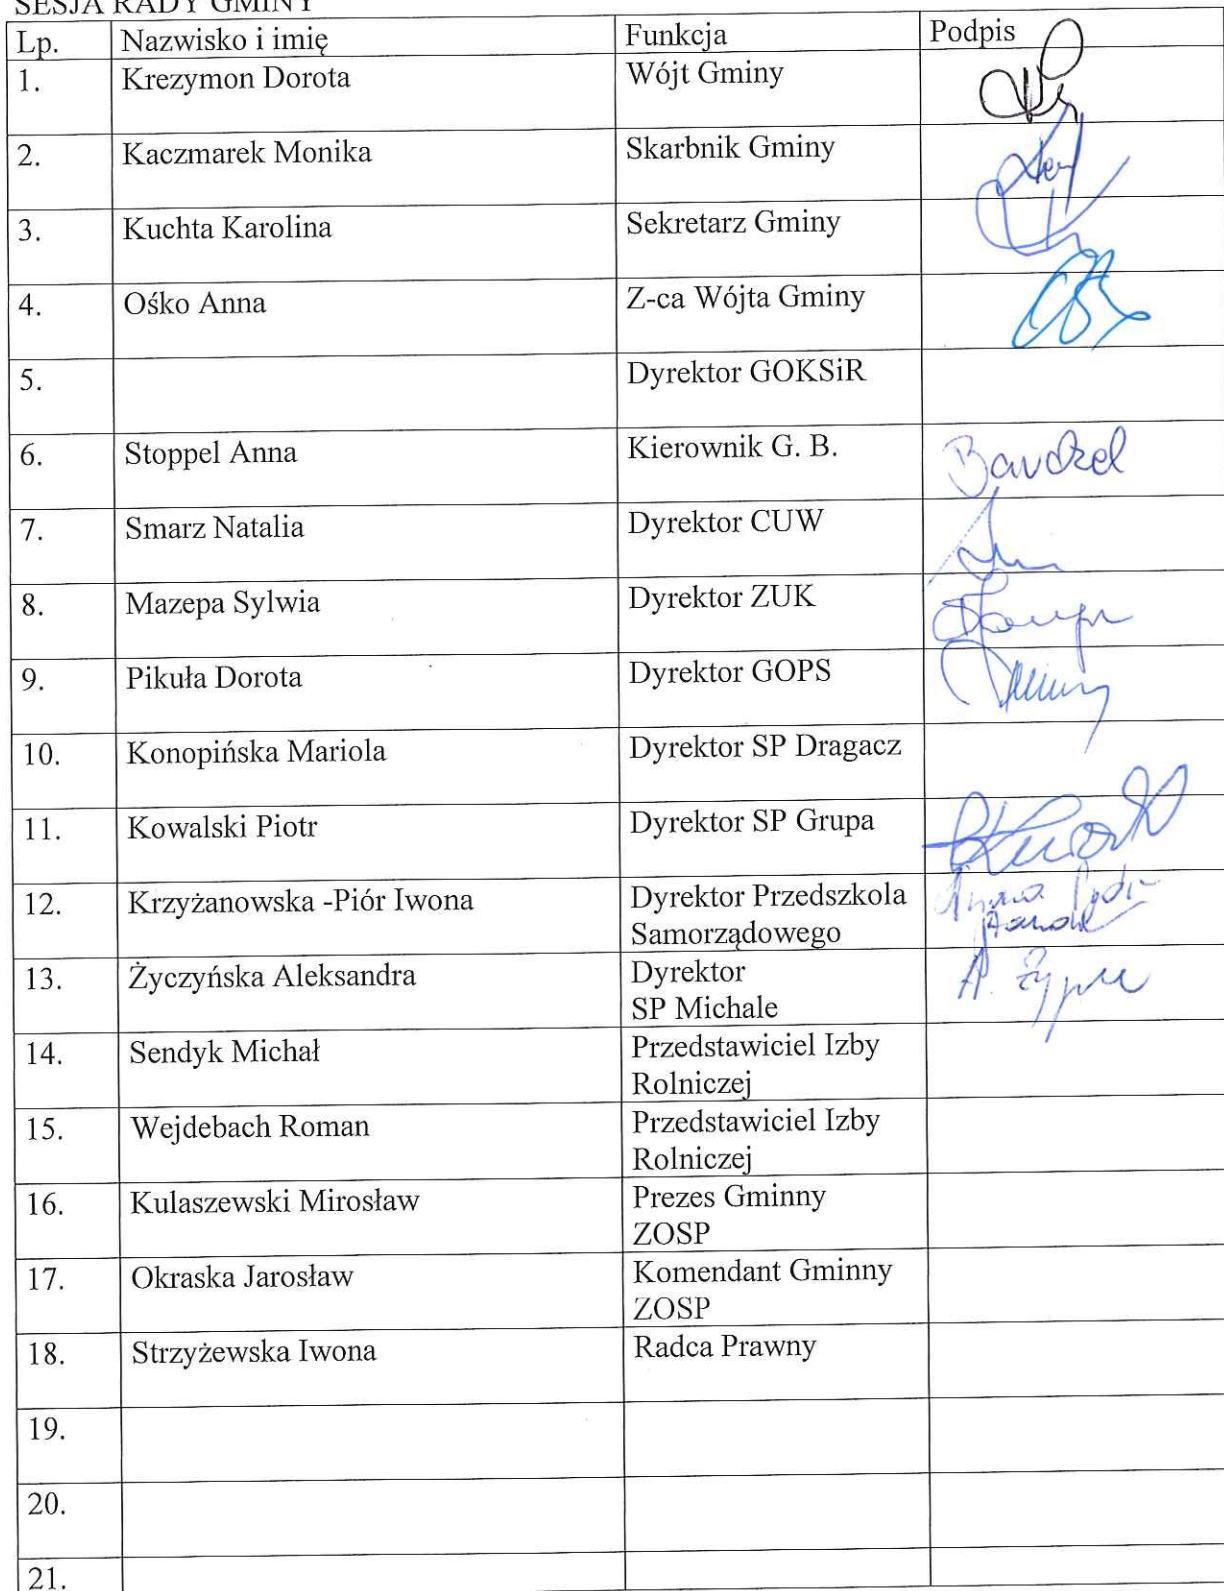 SESJA RADY GMINY
Lp. Nazwisko i imię Funkcja Podpis
1. Krezymon Dorota Wójt Gminy
2. Kaczmarek Monika Skarbnik Gminy
3. Kuchta Karolina Sekretarz Gminy
4. Ośko Anna Z-ca Wójta Gminy
5. Dyrektor GOKSiR
6. Stoppel Anna Kierownik G. B.
7. Smarz Natalia Dyrektor CUW
8. Mazepa Sylwia Dyrektor ZUK
9. Pikuła Dorota Dyrektor GOPS
10. Konopińska Mariola Dyrektor SP Dragacz
11. Kowalski Piotr Dyrektor SP Grupa
12. Krzyżanowska -Piór Iwona Dyrektor Przedszkola
Samorządowego
13. Życzyńska Aleksandra Dyrektor
SP Michale
14. Sendyk Michał Przedstawiciel Izby
Rolniczej
15. Wejdebach Roman Przedstawiciel Izby
Rolniczej
16. Kulaszewski Mirosław Prezes Gminny
ZOSP
17. Okraska Jarosław Komendant Gminny
ZOSP
18. Strzyżewska Iwona Radca Prawny
19.
20.
21.